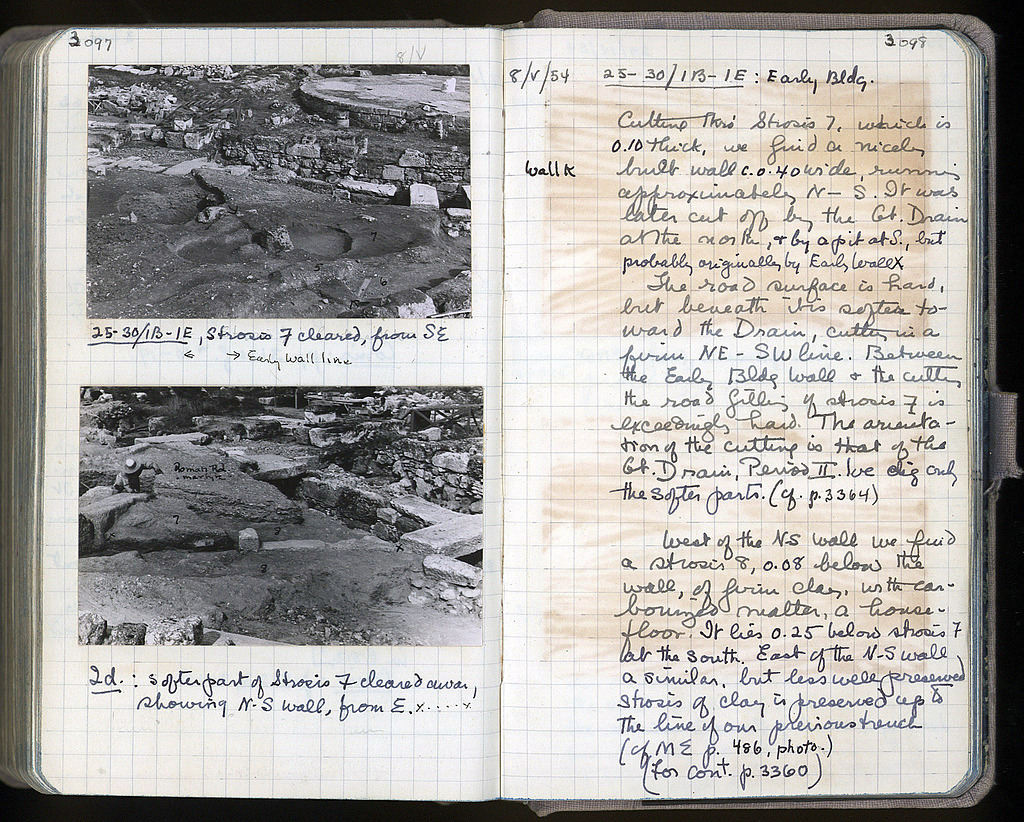 3097
8/V
7
5
6
25-30/1B-1E, Strosis 7 cleared, from SE
← → Early wall line
Roman Rd.
7
3
x
3
Id. : Softer part of Strosis 7 cleared away,
showing N-S wall, from E. x.....x
3098
8/V/54 25-30/1B-1E : Early Bldg.
Cutting thro' Strosis 7, which is
0.10 thick, we find a nicely
Wall K built wall c. 0.40 wide, running
approximately N-S. It was
later cut off by the Gt. Drain
at the north, & by a pit at S., but
probably originally by Early Wall X
The road surface is hard,
but beneath it is softer to-
ward the Drain, cutting in a
firm NE-SW line. Between
the Early Bldg Wall & the cutting
the road filling of strosis 7 is
exceedingly hard. The orienta-
tion of the cutting is that of the
Gt. Drain, Period II. We dig only
the softer parts. (cf. p. 3364)
West of the NS wall we find
a strosis 8, 0.08 below the
wall, of firm clay, with car-
bonized matter, a house-
floor. It lies 0.25 below strosis 7
at the south. East of the N-S wall,
a similar, but less well preserved
strosis of clay is preserved up to
the line of our previous trench
(cf ME p. 486, photo.)
(For Cont. p. 3360)